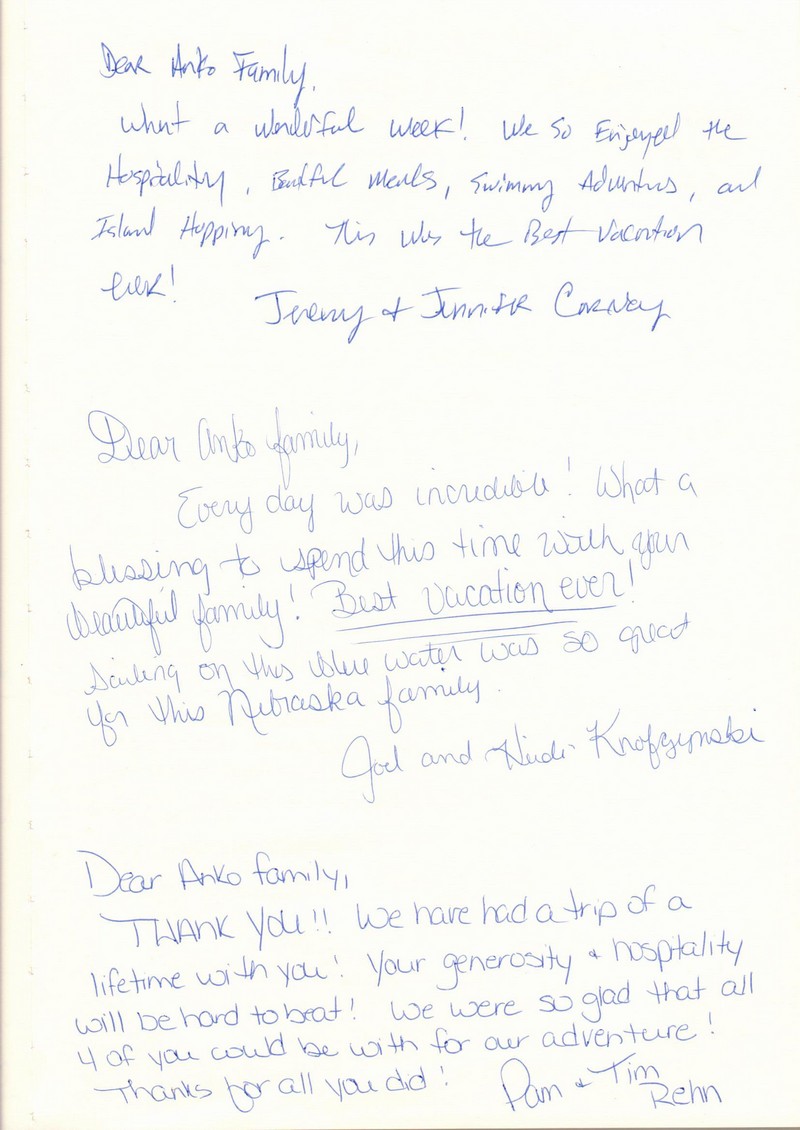 Dear Anko Family,
What a wonderful week! We so Enjoyed the
Hospitality, meals, Swimming Adventures, and
Island Hopping. This was the Best Vacation
Ever!
Jeremy & Jennifer
Dear Anko family,
Every day was incredible! What a
blessing to spend this time with your
beautiful family! Best vacation ever!
Sailing on this blue water was so great
for this Nebraska family.
Joel and Heidi Knofczynski
Dear Anko family,
THANK YOU!! We have had a trip of a
lifetime with you! Your generosity & hospitality
will be hard to beat! We were so glad that all
4 of you could be with for our adventure!
Thanks for all you did!
Pam & Tim
Rehn